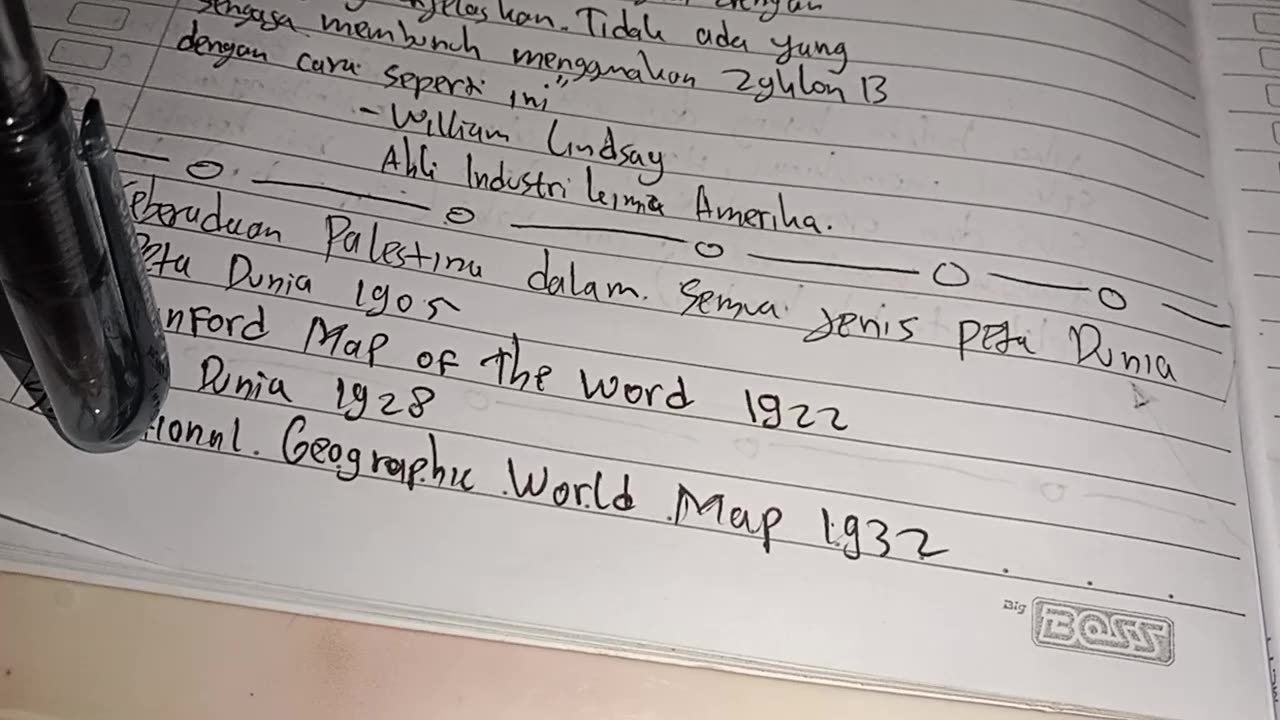 Tidak ada yang
sengaja membunuh menggunakan Zyklon B
dengan cara seperti ini"
- William Lindsay
Ahli Industri kimia Amerika.
Keberadaan Palestina dalam semua jenis peta Dunia
Peta Dunia 1905
nford Map of the Word 1922
Dunia 1928
tional. Geographic World Map 1932
Big BOSS